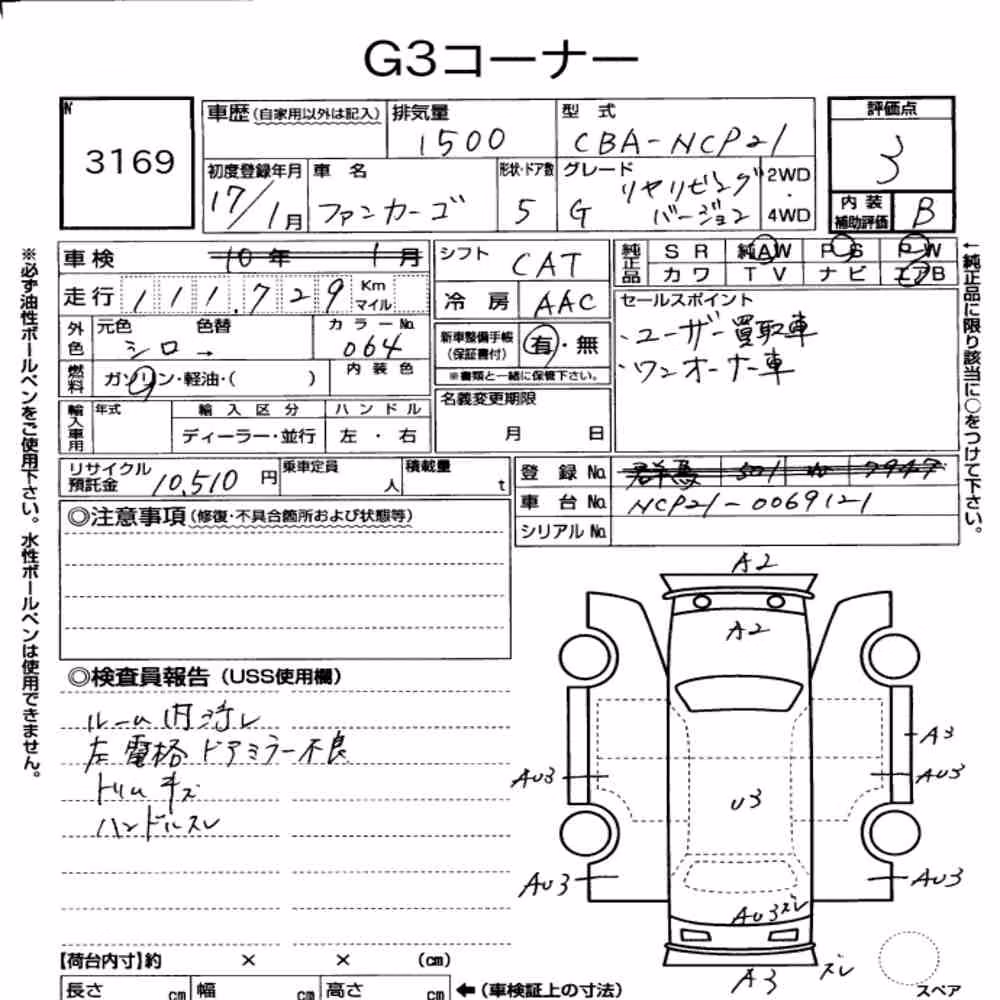 G3コーナー
№
3169
車歴(自家用以外は記入)
排気量
1500
型 式
CBA-NCP21
評価点
3
初度登録年月
17/1月
車 名
ファンカーゴ
形状・ドア数
5
グレード
G リヤリビング
バージョン
2WD
・
4WD
内 装
補助評価
B
車検 10年 1月
走行 111,729 Km
マイル
外色
元色 色替
シロ →
カラーNo.
064
燃料
ガソリン・軽油・( )
内 装 色
輸入車用
年式
輸 入 区 分
ディーラー・並行
ハ ン ド ル
左 ・ 右
シフト
CAT
冷 房
AAC
新車整備手帳
(保証書付)
有・無
※書類と一緒に保管下さい。
名義変更期限
月 日
純正品
S R 純AW P S P W
カ ワ T V ナ ビ エアB
セールスポイント
・ユーザー買取車
・ワンオーナー車
リサイクル
預託金
10,510 円
乗車定員
人
積載量
t
登 録 No. 群馬 501 7947
車 台 No. NCP21-0069121
シリアル No.
◎注意事項(修復・不具合箇所および状態等)
◎検査員報告(USS使用欄)
ルーム内汚レ
左電格ドアミラー不良
トリムキズ
ハンドルスレ
A2
A2
A3
AU3
AU3
U3
AU3
AU3
AU3 ズレ
A3
ズレ
スペア
【荷台内寸】約 × × (㎝)
長さ ㎝ 幅 ㎝ 高さ ㎝ ←(車検証上の寸法)
※必ず油性ボールペンをご使用下さい。水性ボールペンは使用できません。
←純正品に限り該当に○をつけて下さい。